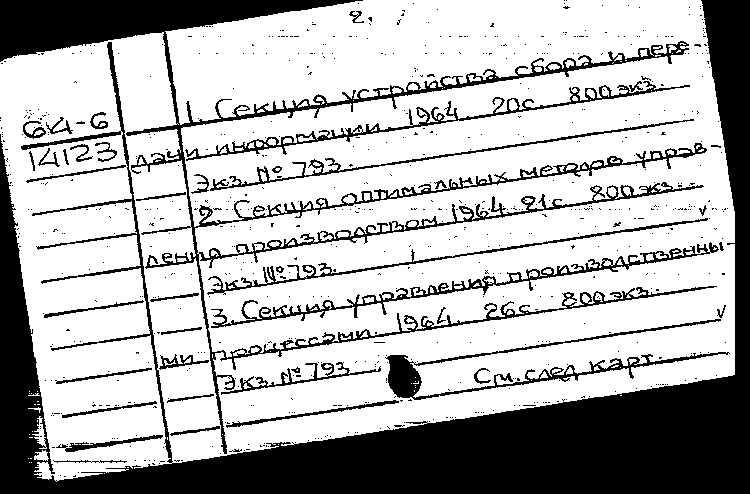 2.
1. Секция устройства сбора и пере-
64-6
14123
дачи информации. 1964. 20с. 800 экз.
Экз. № 793.
2. Секция оптимальных методов управ-
ления производством 1964. 21с. 800 экз.
Экз. № 793.
3. Секция управления производственны-
ми процессами. 1964. 26с. 800 экз.
Экз. № 793
См. след карт.